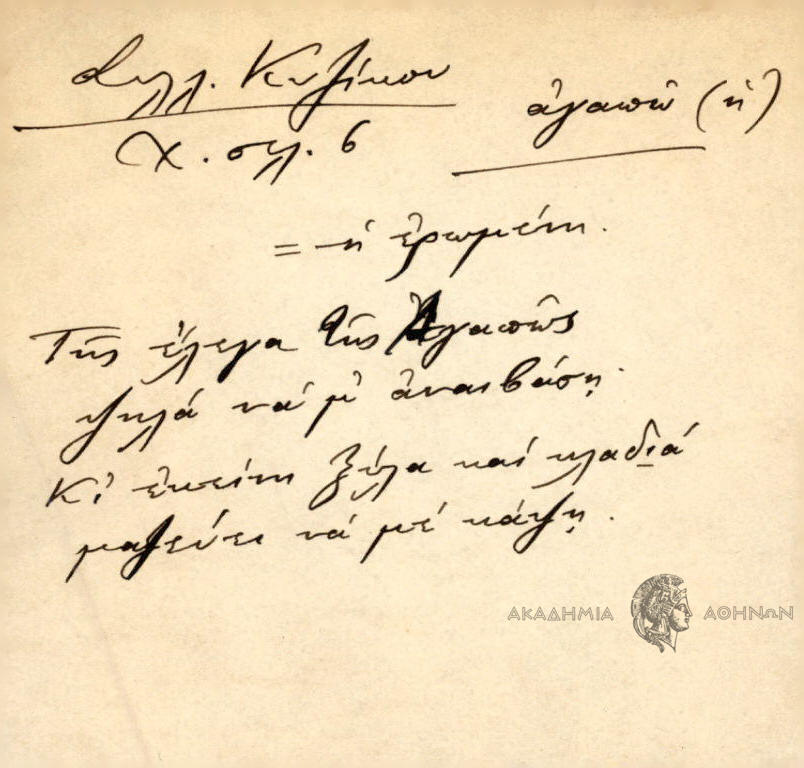 Συλλ. Κυζίκου
Χ. σελ. 6
ἀγαπῶ (ἡ)
= ἡ ἐρωμένη.
Τῆς ἔλεγα τῆς Ἀγαπῶς
ψηλά νά μ' ἀναιβάσῃ.
Κι' ἐκείνη ξύλα καί κλαδιά
μαζεύει νά μέ κάψῃ.
ΑΚΑΔΗΜΙΑ ΑΘΗΝΩΝ